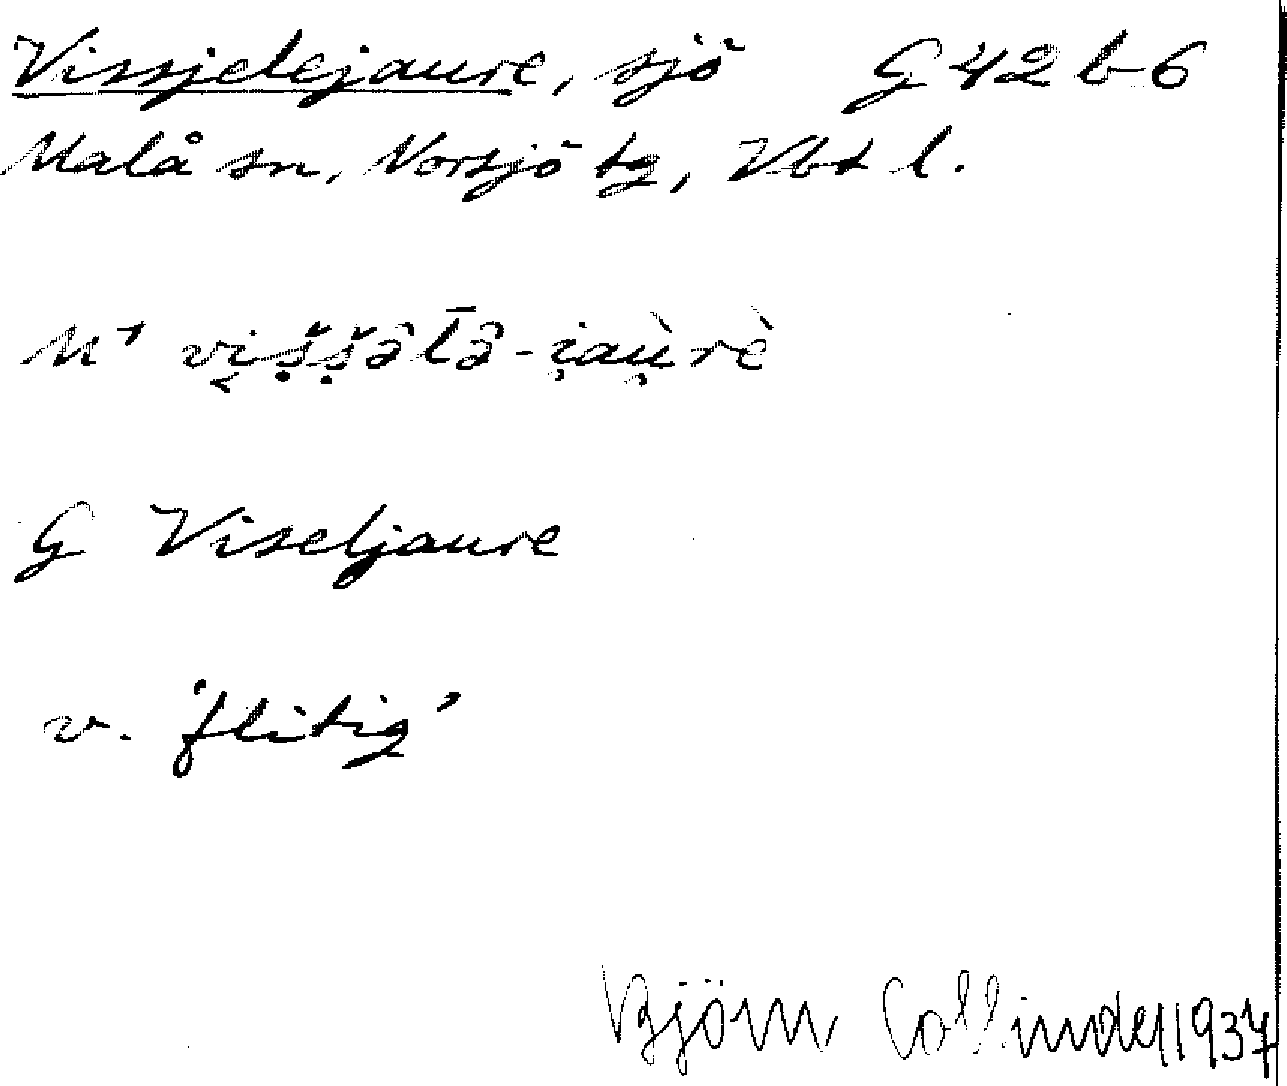 Vissjelejaure, sjö G 42 b 6
Malå sn, Norsjö tg, Vbt l.
M¹ vi̮ṣ̌ṣ̌âl̄â-i̯aù̯rè
G Viseljaure
v. 'flitig'
Björn Collinder 1937